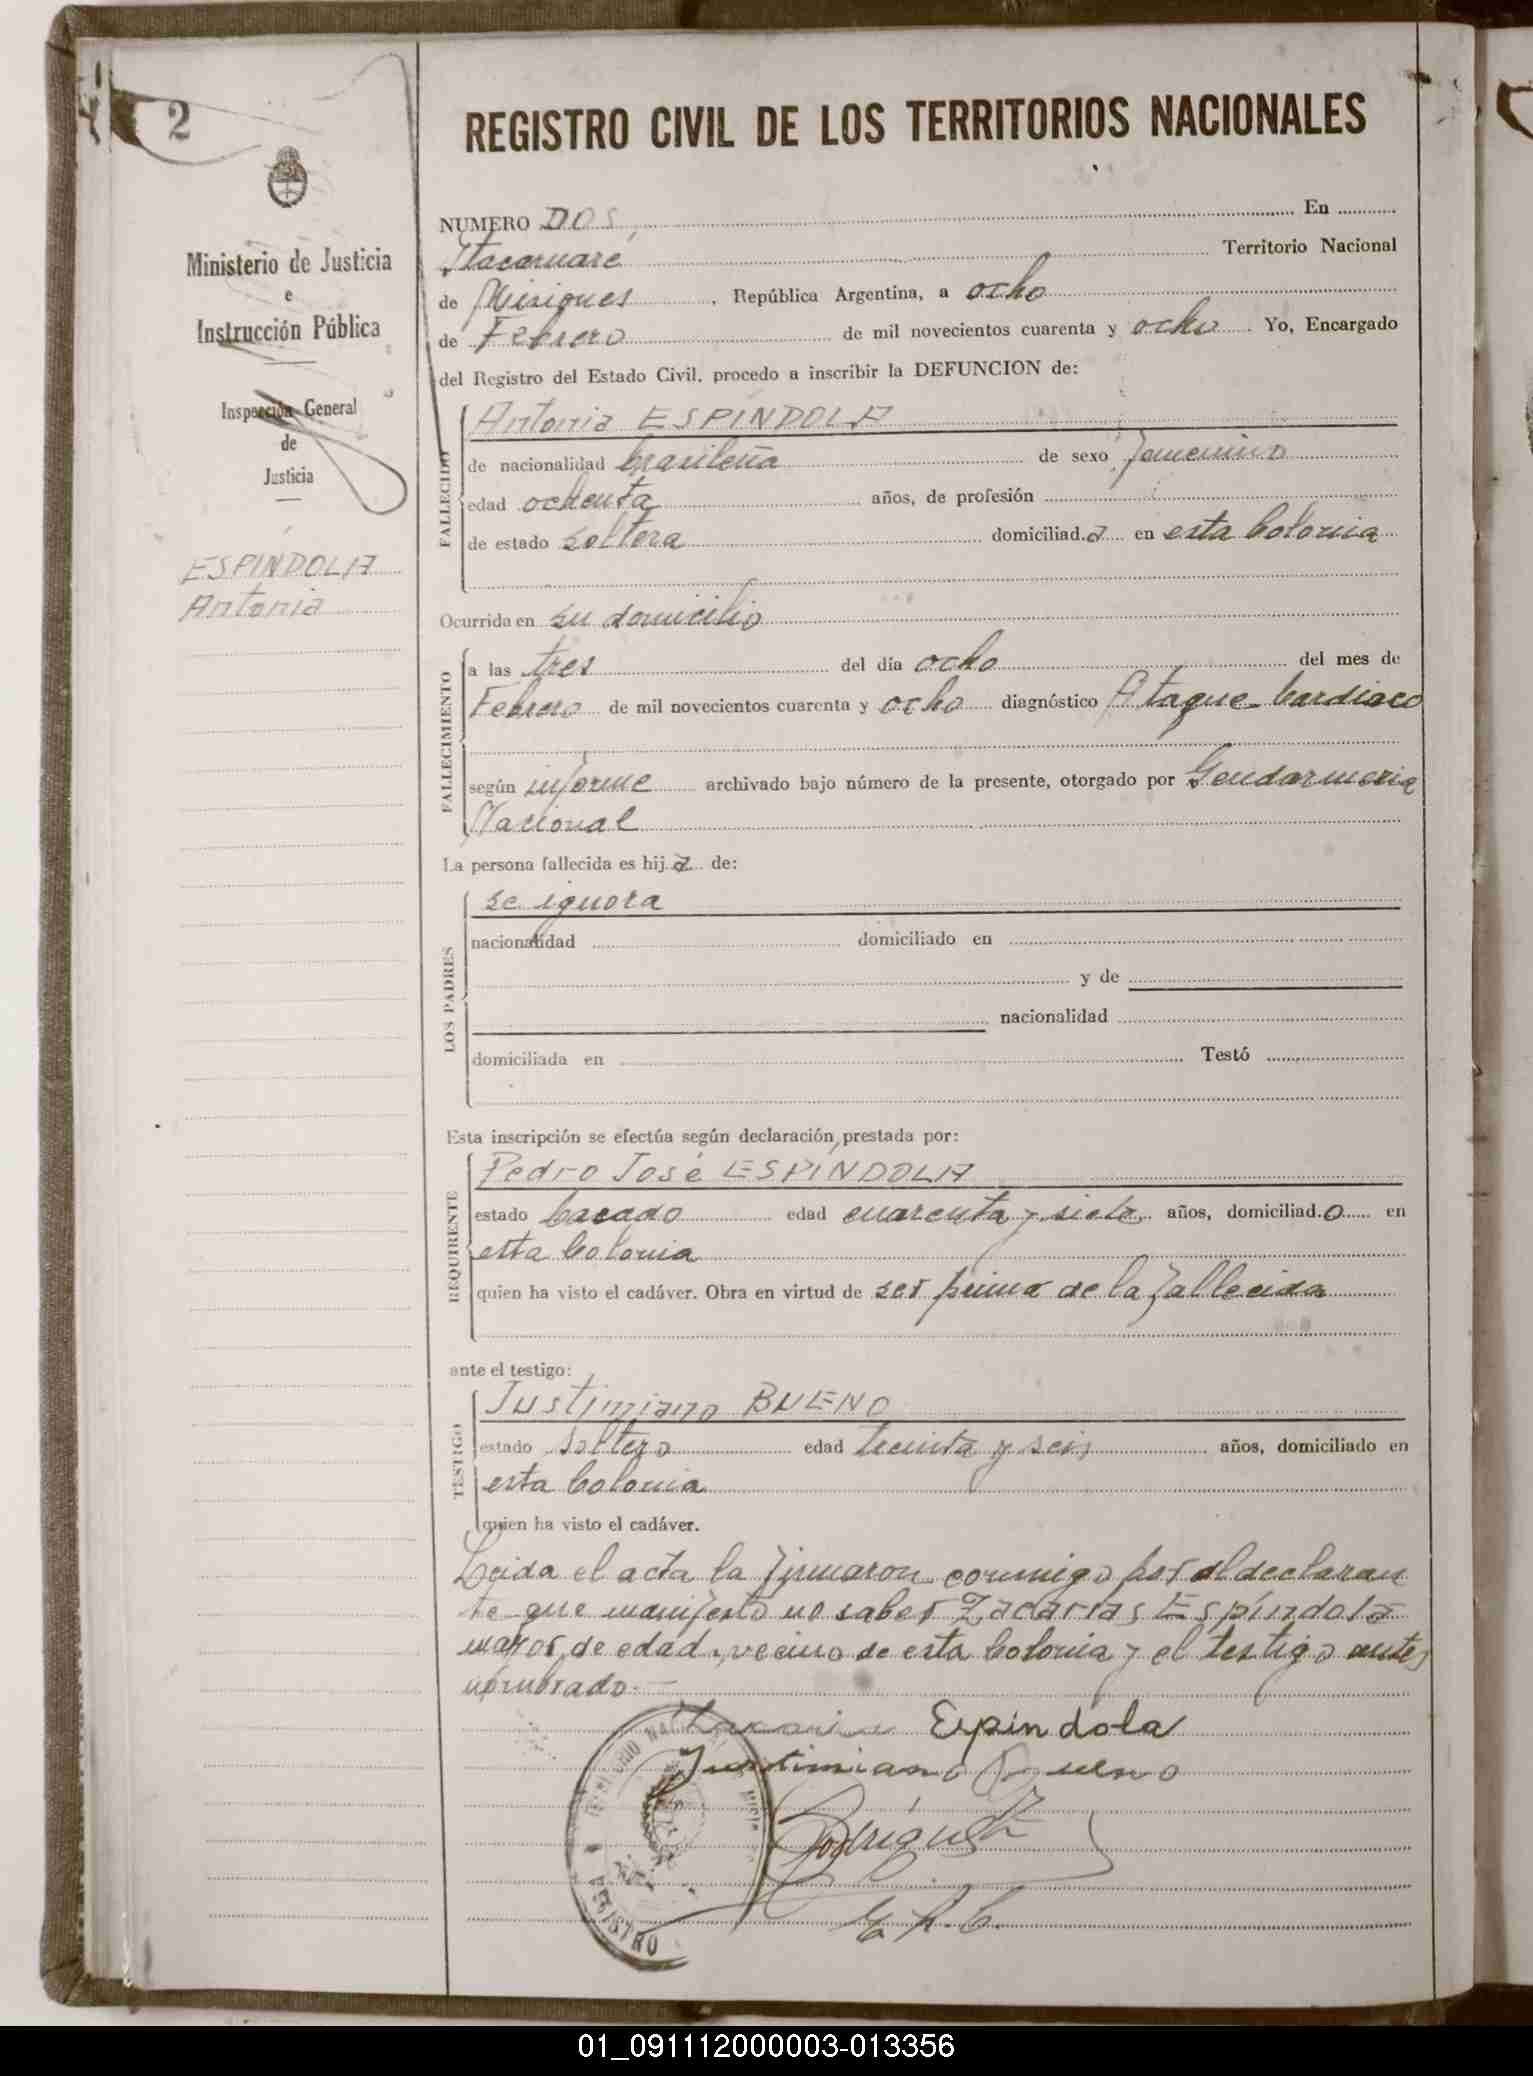 2
Ministerio de Justicia
e
Instrucción Pública
Inspección General
de
Justicia
ESPÍNDOLA
Antonia
REGISTRO CIVIL DE LOS TERRITORIOS NACIONALES
NUMERO DOS, En
Itacaruaré Territorio Nacional
de Misiones, República Argentina, a ocho
de Febrero de mil novecientos cuarenta y ocho. Yo, Encargado
del Registro del Estado Civil, procedo a inscribir la DEFUNCION de:
FALLECIDO
Antonia ESPÍNDOLA
de nacionalidad brasileña de sexo femenino
edad ochenta años, de profesión
de estado soltera domiciliad.a en esta Colonia
Ocurrida en su domicilio
FALLECIMIENTO
a las tres del día ocho del mes de
Febrero de mil novecientos cuarenta y ocho diagnóstico Ataque Cardiaco
según informe archivado bajo número de la presente, otorgado por Gendarmeria
Nacional
La persona fallecida es hij.a de:
LOS PADRES
se ignora
nacionalidad domiciliado en
y de
nacionalidad
domiciliada en Testó
Esta inscripción se efectúa según declaración prestada por:
REQUIRENTE
Pedro José ESPÍNDOLA
estado Casado edad cuarenta y siete años, domiciliad.o en
esta Colonia
quien ha visto el cadáver. Obra en virtud de ser primo de la fallecida
ante el testigo:
TESTIGO
Justimiano BUENO
estado Soltero edad treinta y seis años, domiciliado en
esta Colonia
quien ha visto el cadáver.
Leida el acta la firmaron conmigo por el declaran
te que manifestó no saber Zacarías Espíndola
mayor de edad, vecino de esta Colonia y el testigo antes
nombrado.—
Zacaria Espindola
Justimiano Bueno
REGISTRO
E. R. C.
01_091112000003-013356